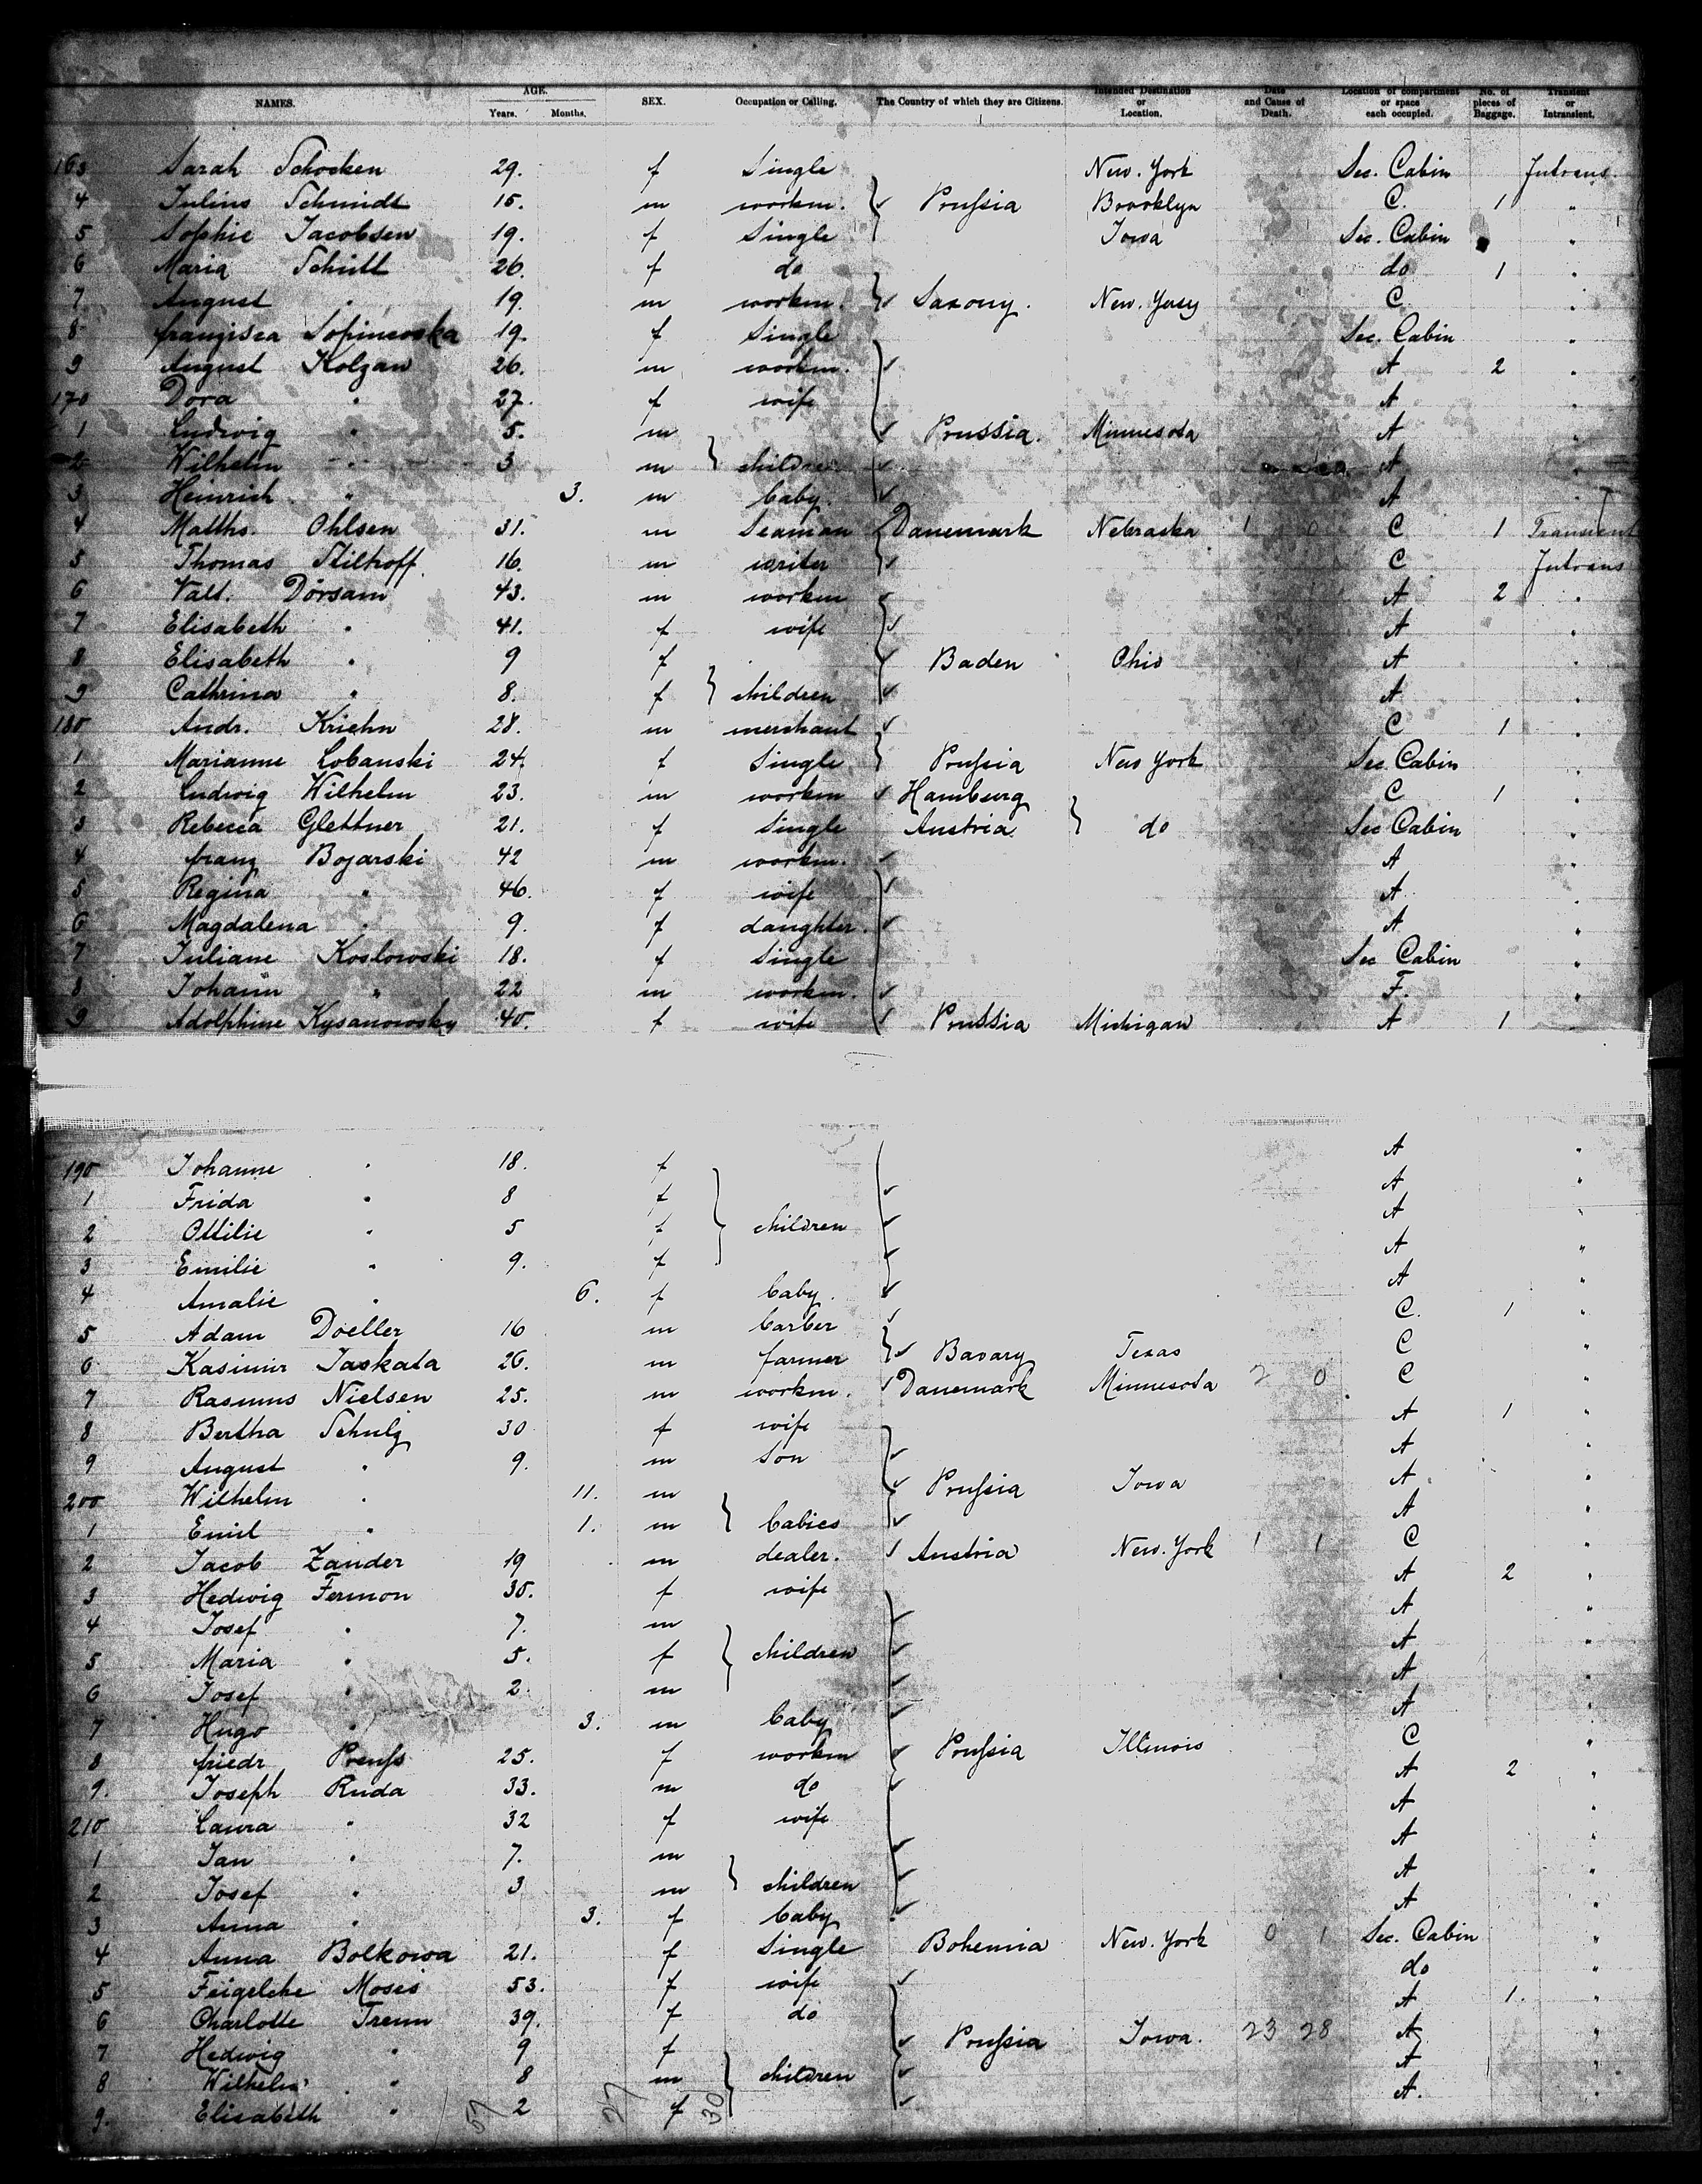 NAMES. AGE. Years. Months. SEX. Occupation or Calling. The Country of which they are Citizens. Intended Destination or Location. Date and Cause of Death. Location of compartment or space each occupied. No. of pieces of Baggage. Transient or Intransient.
163 Sarah Schocken 29. f Single New. York Sec. Cabin Intrans.
4 Julius Schmidt 15. m workm. Prussia Brooklyn C. 1 "
5 Sophie Jacobsen 19. f Single Iowa Sec. Cabin "
6 Maria Schütt 26. f do do 1 "
7 August " 19. m workm. Saxony. New. Yersy C "
8 franzisca Sopinewska 19. f Single Sec. Cabin "
9 August Kolzan 26. m workm. A 2 "
170 Dora " 27. f wife A "
1 Ludwig " 5. m Prussia. Minnesota A "
2 Wilhelm " 3 m children A "
3 Heinrich " 3. m baby. A "
4 Matths. Ohlsen 31. m Seaman Danemark Nebraska 1 0 C 1 Transient
5 Thomas Stilhoff 16. m writer C Intrans
6 Valt. Dörsam 43. m workm A 2 "
7 Elisabeth " 41. f wife A "
8 Elisabeth " 9 f Baden Ohio A "
9 Cathrina " 8. f children A "
180 Andr. Kriehn 28. m merchant C 1 "
1 Marianne Lobanski 24. f Single Prussia New York Sec. Cabin "
2 Ludwig Wilhelm 23. m workm Hamburg C 1 "
3 Rebecca Glettner 21. f Single Austria do Sec Cabin "
4 franz Bojarski 42 m workm. A "
5 Regina " 46. f wife A "
6 Magdalena " 9. f daughter. A "
7 Juliane Koslowski 18. f Single Sec Cabin "
8 Johann " 22 m workm. F. "
9 Adolphine Kysanowsky 40. f wife Prussia Michigan A 1 "
190 Johanne " 18. f A "
1 Frida " 8 f A "
2 Ottilie " 5 f children A "
3 Emilie " 9. f A "
4 Amalie " 6. f baby. A "
5 Adam Doeller 16 m barber C. 1 "
6 Kasimir Jaskata 26. m farmer Bavary Texas C "
7 Rasmus Nielsen 25. m workm. Danemark Minnesota 2 0 C "
8 Bertha Schulz 30 f wife A 1 "
9 August " 9. m Son A "
200 Wilhelm " 11. m Prussia Iowa A "
1 Emil " 1. m babies A "
2 Jacob Zander 19 m dealer. Austria New. York 1 1 C "
3 Hedwig Fermon 30. f wife A 2 "
4 Josef " 7. m A "
5 Maria " 5. f children A "
6 Josef " 2. m A "
7 Hugo " 3. m baby A "
8 friedr Preuss 25. f workm Prussia Illinois C "
9. Joseph Ruda 33. m do A 2 "
210 Laura " 32 f wife A "
1 Jan " 7. m A "
2 Josef " 3 m children A "
3 Anna " 3. f baby A "
4 Anna Bolkowa 21. f Single Bohemia New. York 0 1 Sec. Cabin "
5 Feigelche Moses 53. f wife do "
6 Charlotte Treun 39. f do A 1. "
7 Hedwig " 9 f Prussia Iowa. 23 28 A "
8 Wilhelm " 8 m children A "
9. Elisabeth " 2 f A. "
57 27 30